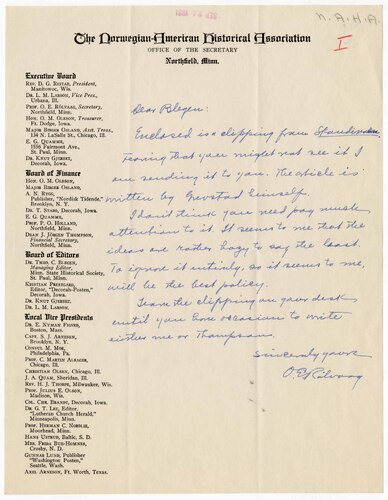 N.A.H.A.
I
The Norwegian-American Historical Association
OFFICE OF THE SECRETARY
Northfield, Minn.
Executive Board
REV. D. G. RISTAD, President,
Manitowoc, Wis.
DR. L. M. LARSON, Vice Pres.,
Urbana, Ill.
PROF. O. E. RÖLVAAG, Secretary,
Northfield, Minn.
HON. O. M. OLESON, Treasurer,
Ft. Dodge, Iowa.
MAJOR BIRGER OSLAND, Asst. Treas.,
134 N. LaSalle St., Chicago, Ill.
E. G. QUAMME,
1596 Fairmont Ave.,
St. Paul, Minn.
DR. KNUT GJERSET,
Decorah, Iowa.
Board of Finance
HON. O. M. OLESON,
MAJOR BIRGER OSLAND,
A. N. RYGG,
Publisher, "Nordisk Tidende,"
Brooklyn, N. Y.
DR. T. STABO, Decorah, Iowa.
E. G. QUAMME,
St. Paul, Minn.
PROF. P. O. HOLLAND,
Northfield, Minn.
DEAN J. JÖRGEN THOMPSON,
Financial Secretary,
Northfield, Minn.
Board of Editors
DR. THEO. C. BLEGEN,
Managing Editor,
Minn. State Historical Society,
St. Paul, Minn.
KRISTIAN PRESTGARD,
Editor, "Decorah-Posten,"
Decorah, Iowa.
DR. KNUT GJERSET
DR. L. M. LARSON.
Local Vice Presidents
DR. E. NYMAN FIGVED,
Boston, Mass.
CAPT. S. J. ARNESEN,
Brooklyn, N. Y.
CONSUL M. MOE,
Philadelphia, Pa.
PROF. C. MARTIN ALSAGER,
Chicago, Ill.
CHRISTIAN OLSEN, Chicago, Ill.
J. A. QUAM, Sheridan, Ill.
REV. H. J. THORPE, Milwaukee, Wis.
PROF. JULIUS E. OLSON,
Madison, Wis.
COL. CHR. BRANDT, Decorah, Iowa.
DR. G. T. LEE, Editor,
"Lutheran Church Herald,"
Minneapolis, Minn.
PROF. HERMAN C. NORDLIE,
Moorhead, Minn.
HANS USTRUD, Baltic, S. D.
MRS. FRIDA BUE-HOMNES,
Crosby, N. D.
GUNNAR LUND, Publisher
"Washington Posten,"
Seattle, Wash.
AXEL ARNESON, Ft. Worth, Texas.
Dear Blegen:
Enclosed is a clipping from Skandinaven.
Fearing that you might not see it I
am sending it to you. The article is
written by Grevstad himself.
I don't think you need pay much
attention to it. It seems to me that the
ideas are rather hazy to say the least.
To ignore it entirely, so it seems to me,
will be the best policy.
Leave the clipping on your desk
until you have occasion to write
either me or Thompson.
Sincerely yours
O. E. Rölvaag